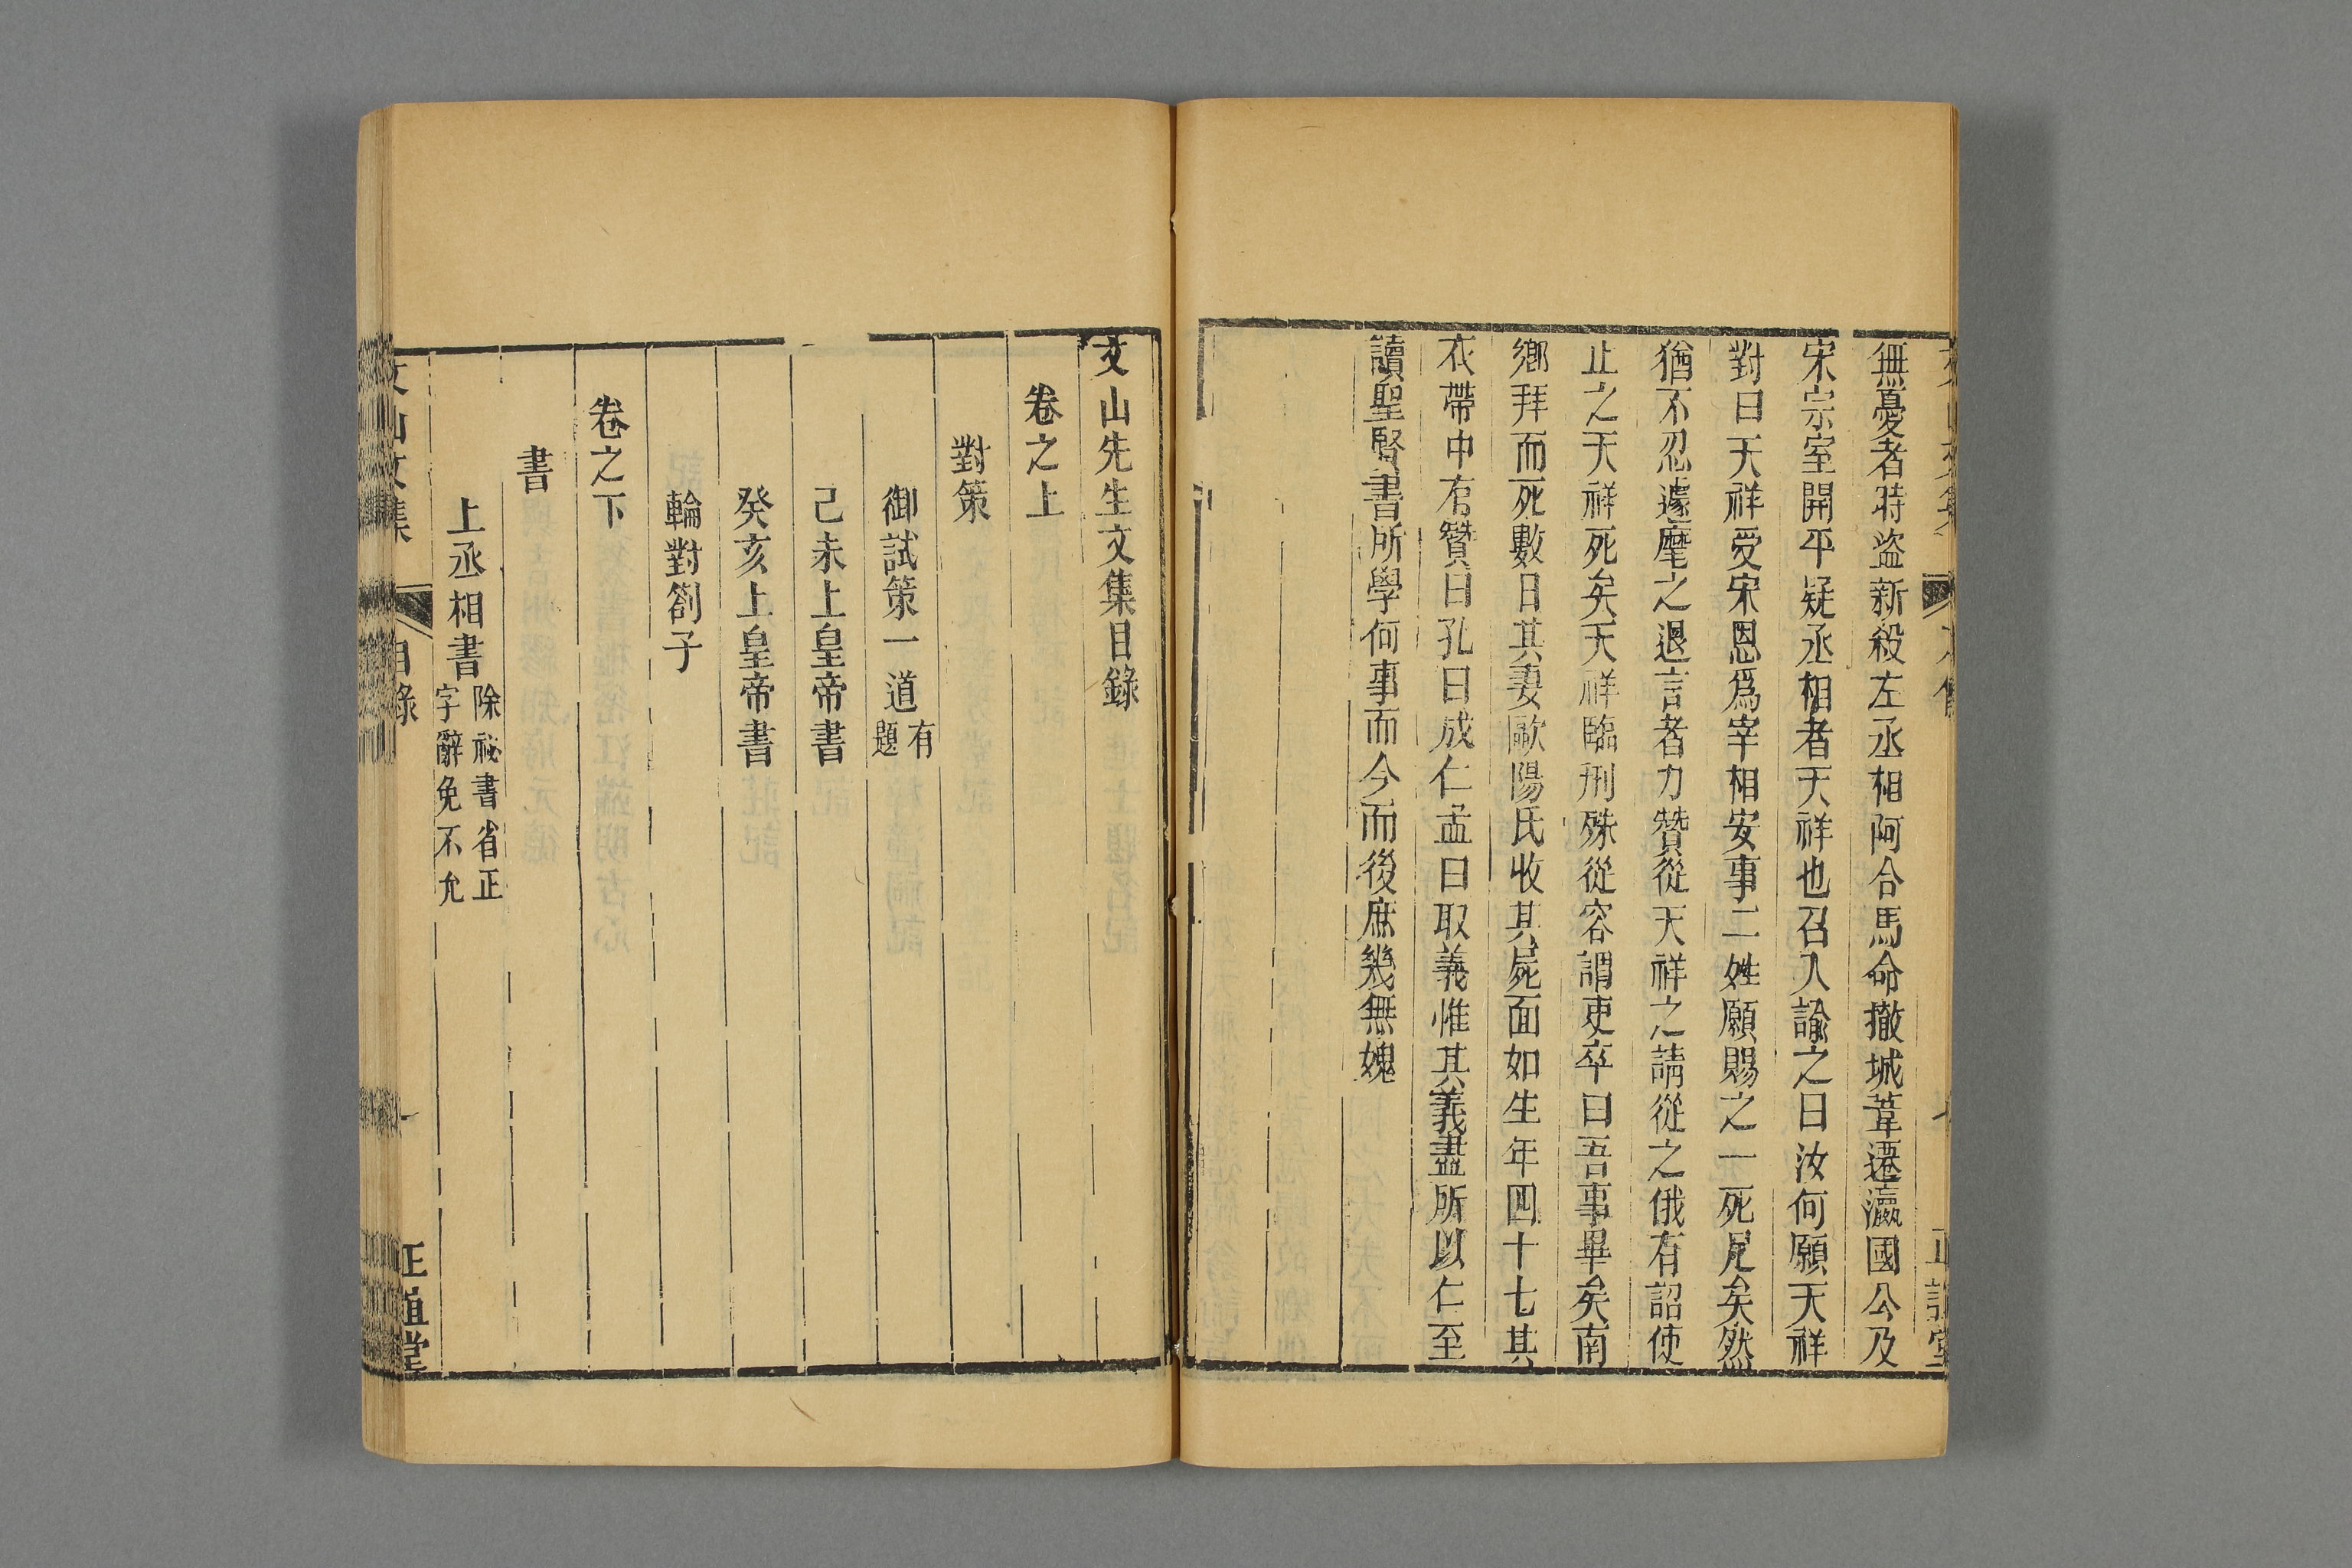 無憂者時盜新殺左丞相阿合馬命撤城葦遷瀛國公及
宋宗室開平疑丞相者天祥也召入諭之曰汝何願天祥
對曰天祥受宋恩爲宰相安事二姓願賜之一死足矣然
猶不忍遽麾之退言者力贊從天祥之請從之俄有詔使
止之天祥死矣天祥臨刑殊從容謂吏卒曰吾事畢矣南
鄉拜而死數日其妻歐陽氏收其屍面如生年四十七其
衣帶中有贊曰孔曰成仁孟曰取義惟其義盡所以仁至
讀聖賢書所學何事而今而後庶幾無媿
文山先生文集目錄
卷之上
對策
御試策一道有題
己未上皇帝書
癸亥上皇帝書
輪對劄子
卷之下
書
上丞相書除祕書省正字辭免不允
文山文集
目錄
一
正誼堂